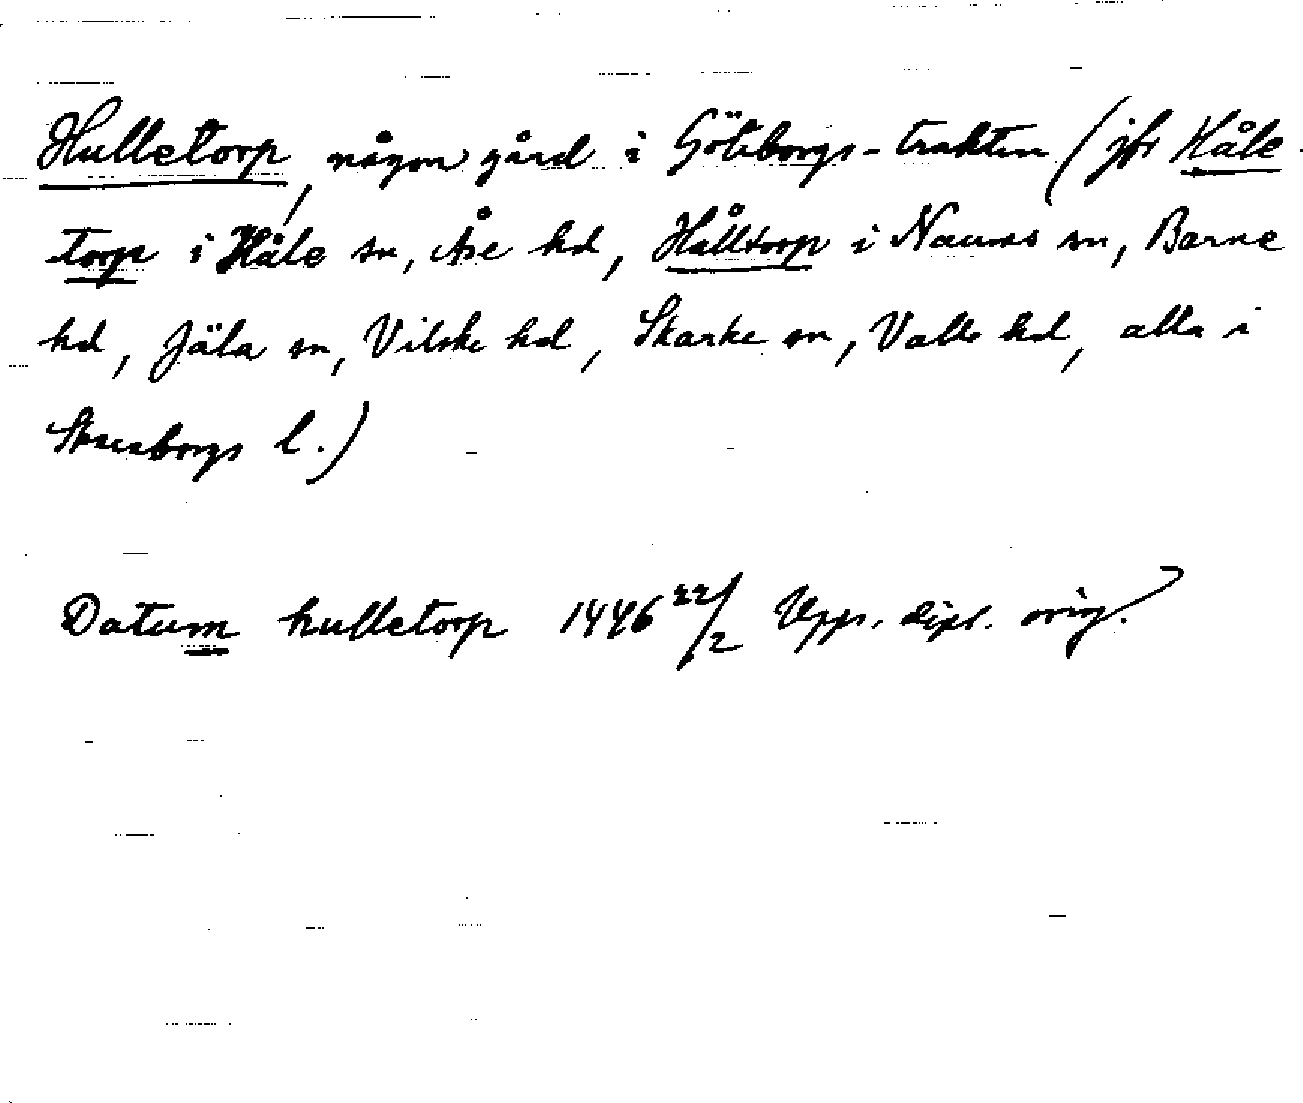 Hulletorp, någon gård i Göteborgs-trakten (jfr Håle
torp i Håle sn, Åse hd, Hålltorp i Naums sn, Barne
hd, Jäla sn, Vilske hd, Skarke sn, Valle hd, alla i
Skaraborgs l.)
Datum hulletorp 1446 22/2 Upps. dipl. orig.